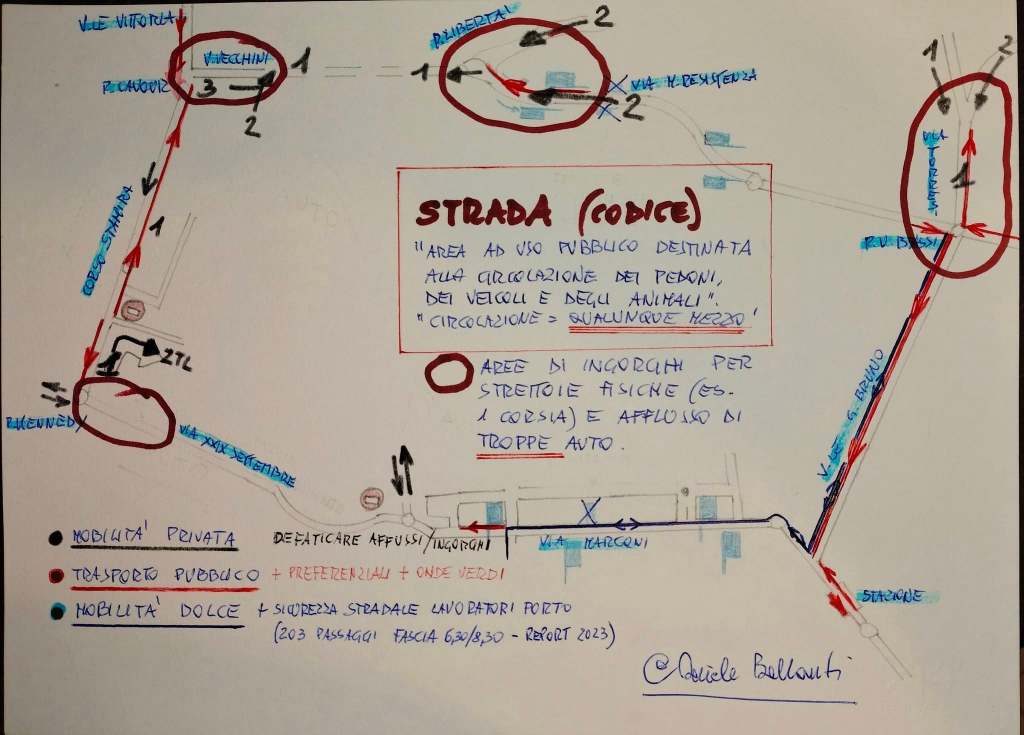 V.LE VITTORIA
P.LIBERTA'
2
1
2
V.VECCHINI
1
P.CAVOUR
3
2
1
2
VIA M.RESISTENZA
1
STRADA (CODICE)
"AREA AD USO PUBBLICO DESTINATA
ALLA CIRCOLAZIONE DEI PEDONI,
DEI VEICOLI E DEGLI ANIMALI".
"CIRCOLAZIONE = QUALUNQUE MEZZO"
P.U.BASSI
CORSO STAMIRA
1
1
ZTL
P.KENNEDY
VIA XXIX SETTEMBRE
AREE DI INGORGHI PER
STRETTOIE FISICHE (ES.
1 CORSIA) E AFFLUSSO DI
TROPPE AUTO.
V.LE G. BRUNO
MOBILITA' PRIVATA DEFATICARE AFFUSSI/INGORGHI
VIA MARCONI
TRASPORTO PUBBLICO + PREFERENZIALI + ONDE VERDI
MOBILITA' DOLCE + SICUREZZA STRADALE LAVORATORI PORTO
(203 PASSAGGI FASCIA 6,30/8,30 - REPORT 2023)
STAZIONE